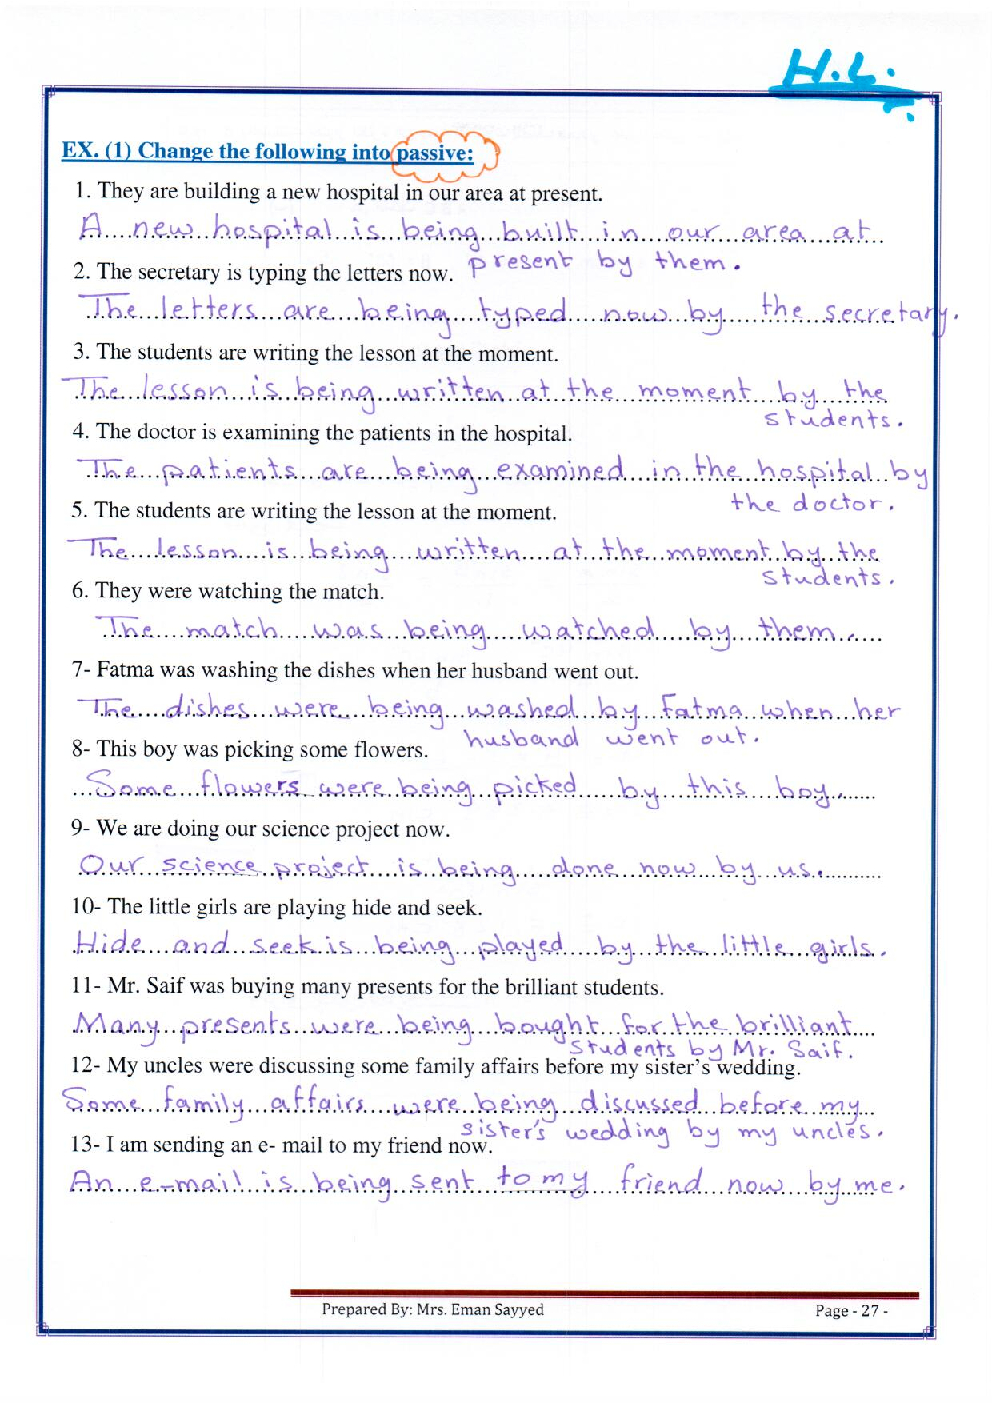 H.L.
EX. (1) Change the following into passive:
1. They are building a new hospital in our area at present.
A new hospital is being built in our area at
present by them.
2. The secretary is typing the letters now.
The letters are being typed now by the secretary.
3. The students are writing the lesson at the moment.
The lesson is being written at the moment by the
students.
4. The doctor is examining the patients in the hospital.
The patients are being examined in the hospital by
the doctor.
5. The students are writing the lesson at the moment.
The lesson is being written at the moment by the
students.
6. They were watching the match.
The match was being watched by them.
7- Fatma was washing the dishes when her husband went out.
The dishes were being washed by Fatma when her
husband went out.
8- This boy was picking some flowers.
Some flowers were being picked by this boy.
9- We are doing our science project now.
Our science project is being done now by us.
10- The little girls are playing hide and seek.
Hide and seek is being played by the little girls.
11- Mr. Saif was buying many presents for the brilliant students.
Many presents were being bought for the brilliant
students by Mr. Saif.
12- My uncles were discussing some family affairs before my sister's wedding.
Some family affairs were being discussed before my
sister's wedding by my uncles.
13- I am sending an e- mail to my friend now.
An e-mail is being sent to my friend now by me.
Prepared By: Mrs. Eman Sayyed
Page - 27 -